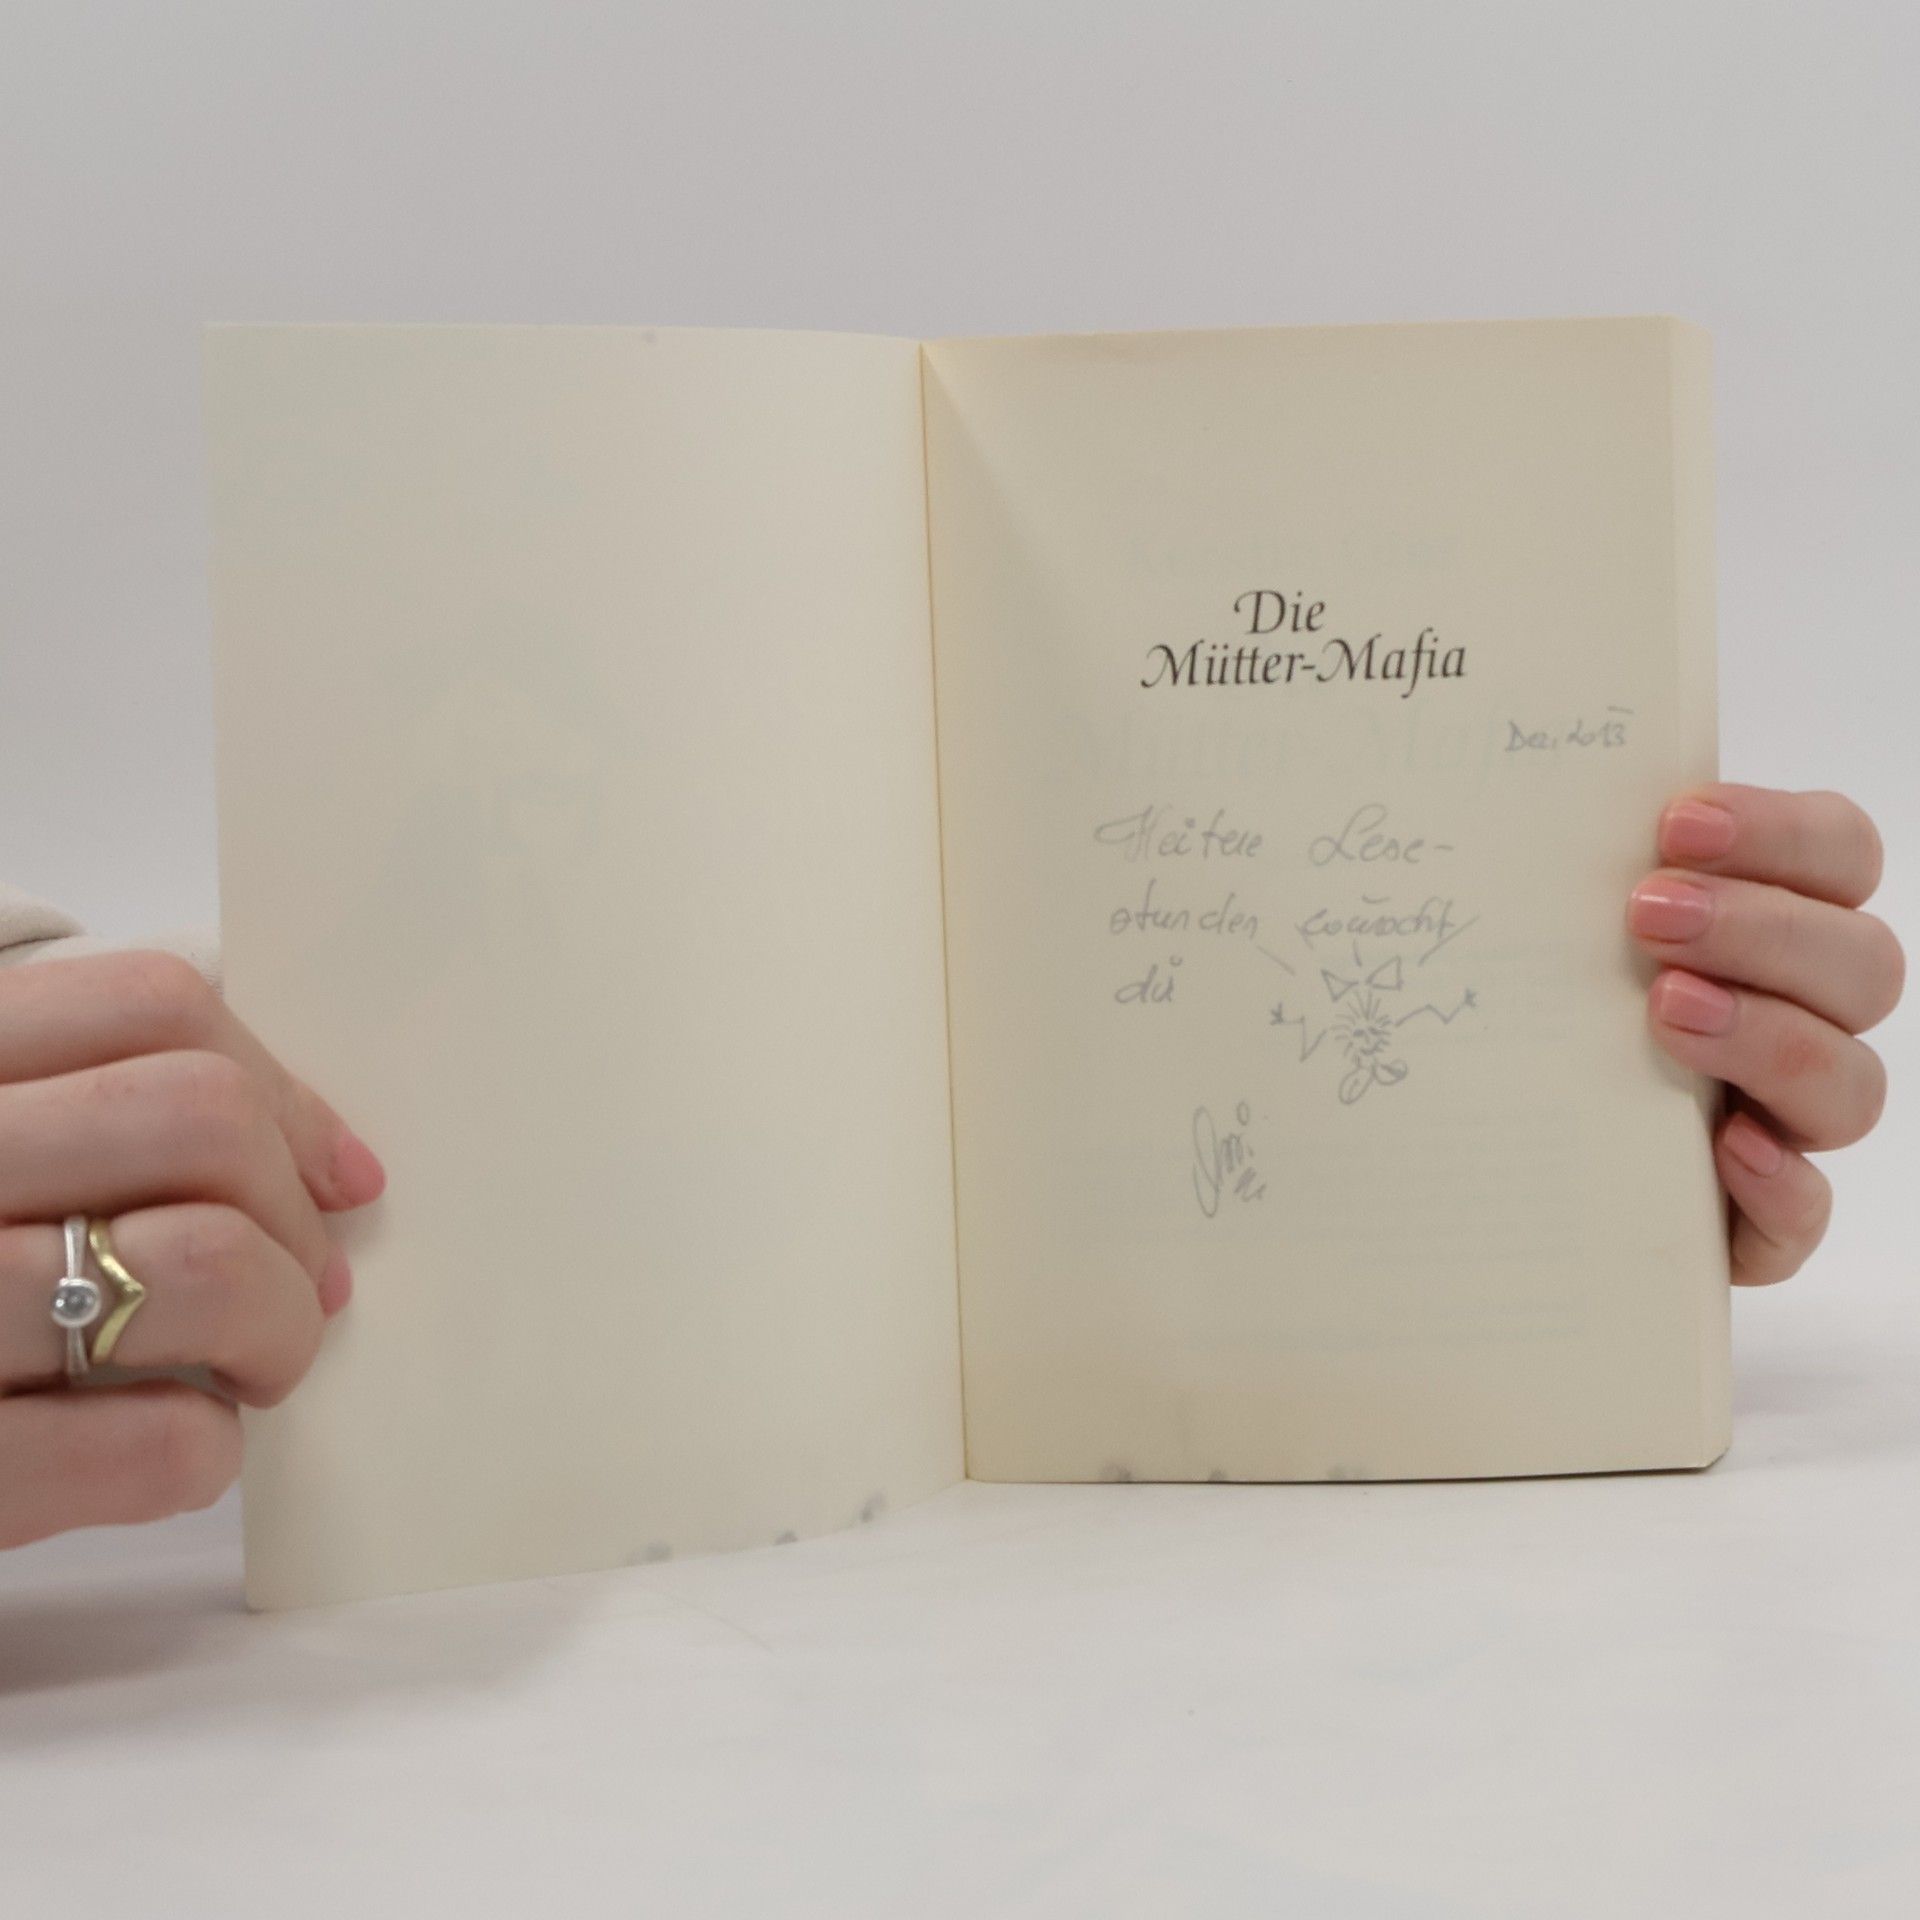 Die
Mütter-Mafia
Dez. 2013
Heitere Lese-
stunden wünscht
dir